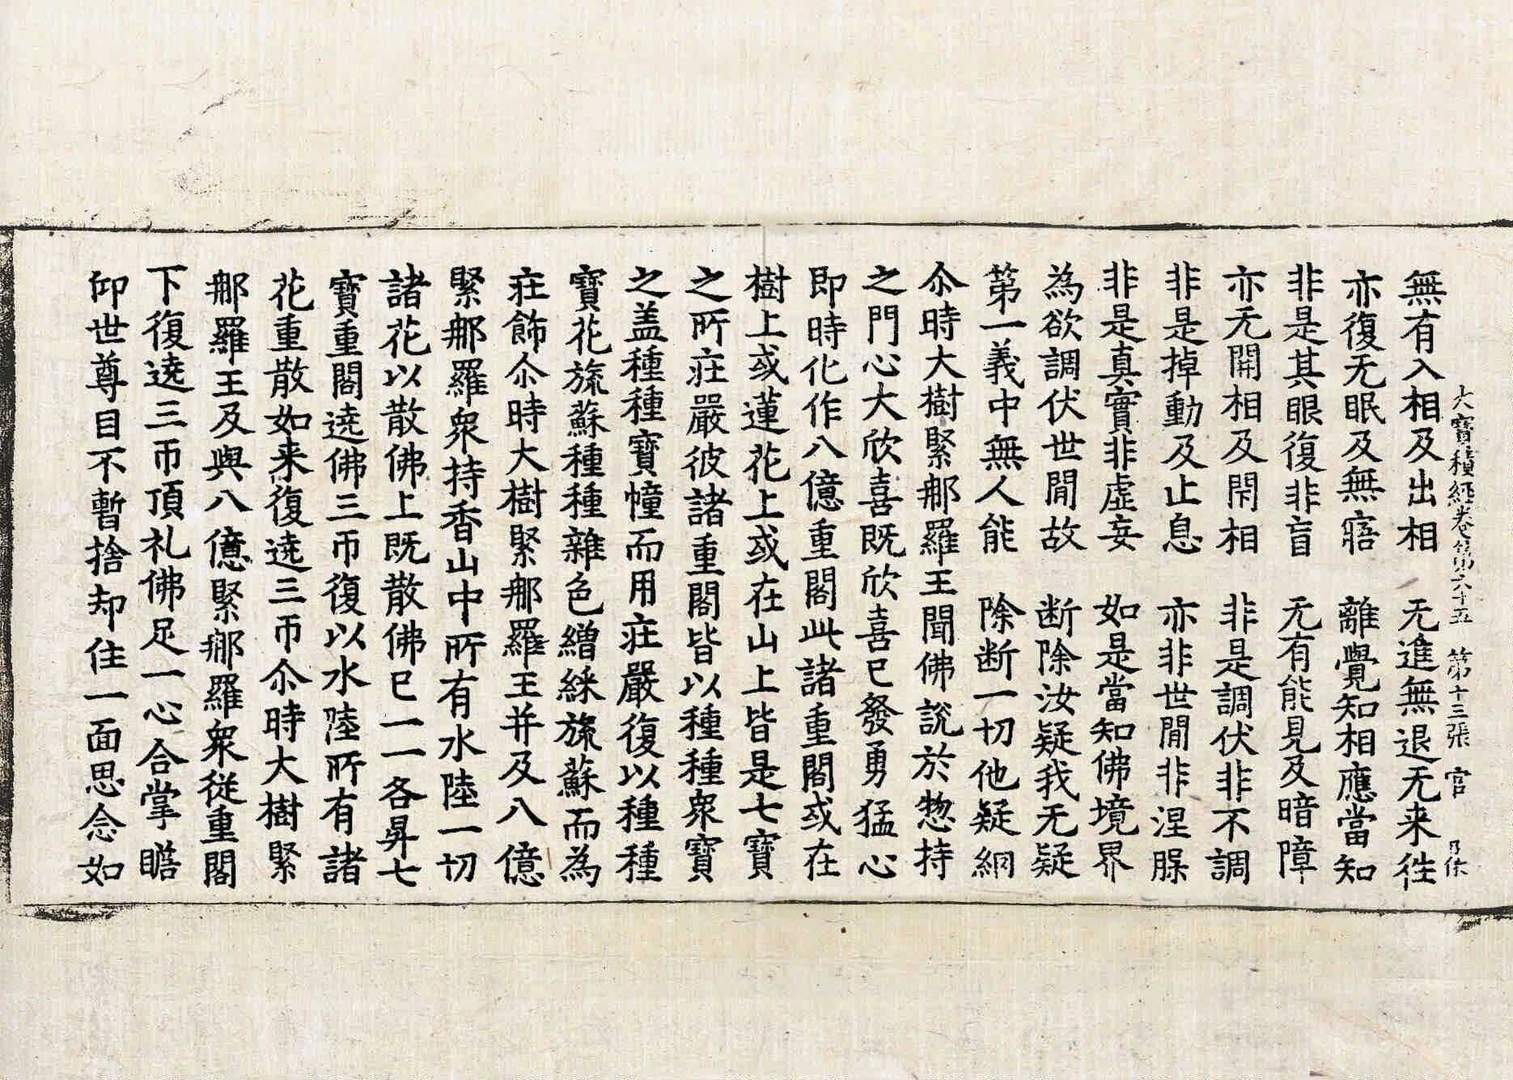 大寶積經卷第六十五 第十三張 官
無有入相及出相 无進無退无来徃
亦復无眠及無寤 離覺知相應當知
非是其眼復非盲 无有能見及暗障
亦无開相及閇相 非是調伏非不調
非是掉動及止息 亦非世間非涅
非是真實非虛妄 如是當知佛境界
為欲調伏世間故 断除汝疑我无疑
第一義中無人能 除断一切他疑網
尒時大樹緊那羅王聞佛說於惣持
之門心大欣喜既欣喜已發勇猛心
即時化作八億重閣此諸重閣或在
樹上或蓮花上或在山上皆是七寶
之所庄嚴彼諸重閣皆以種種衆寶
之盖種種寶幢而用庄嚴復以種種
寶花旒蘇種種雜色繒綵旒蘇而為
庄飾尒時大樹緊那羅王并及八億
緊那羅衆持香山中所有水陸一切
諸花以散佛上既散佛已一一各昇七
寶重閣遶佛三帀復以水陸所有諸
花重散如来復遶三帀尒時大樹緊
那羅王及與八億緊那羅衆從重閣
下復遶三帀頂礼佛足一心合掌瞻
仰世尊目不暫捨却住一面思念如